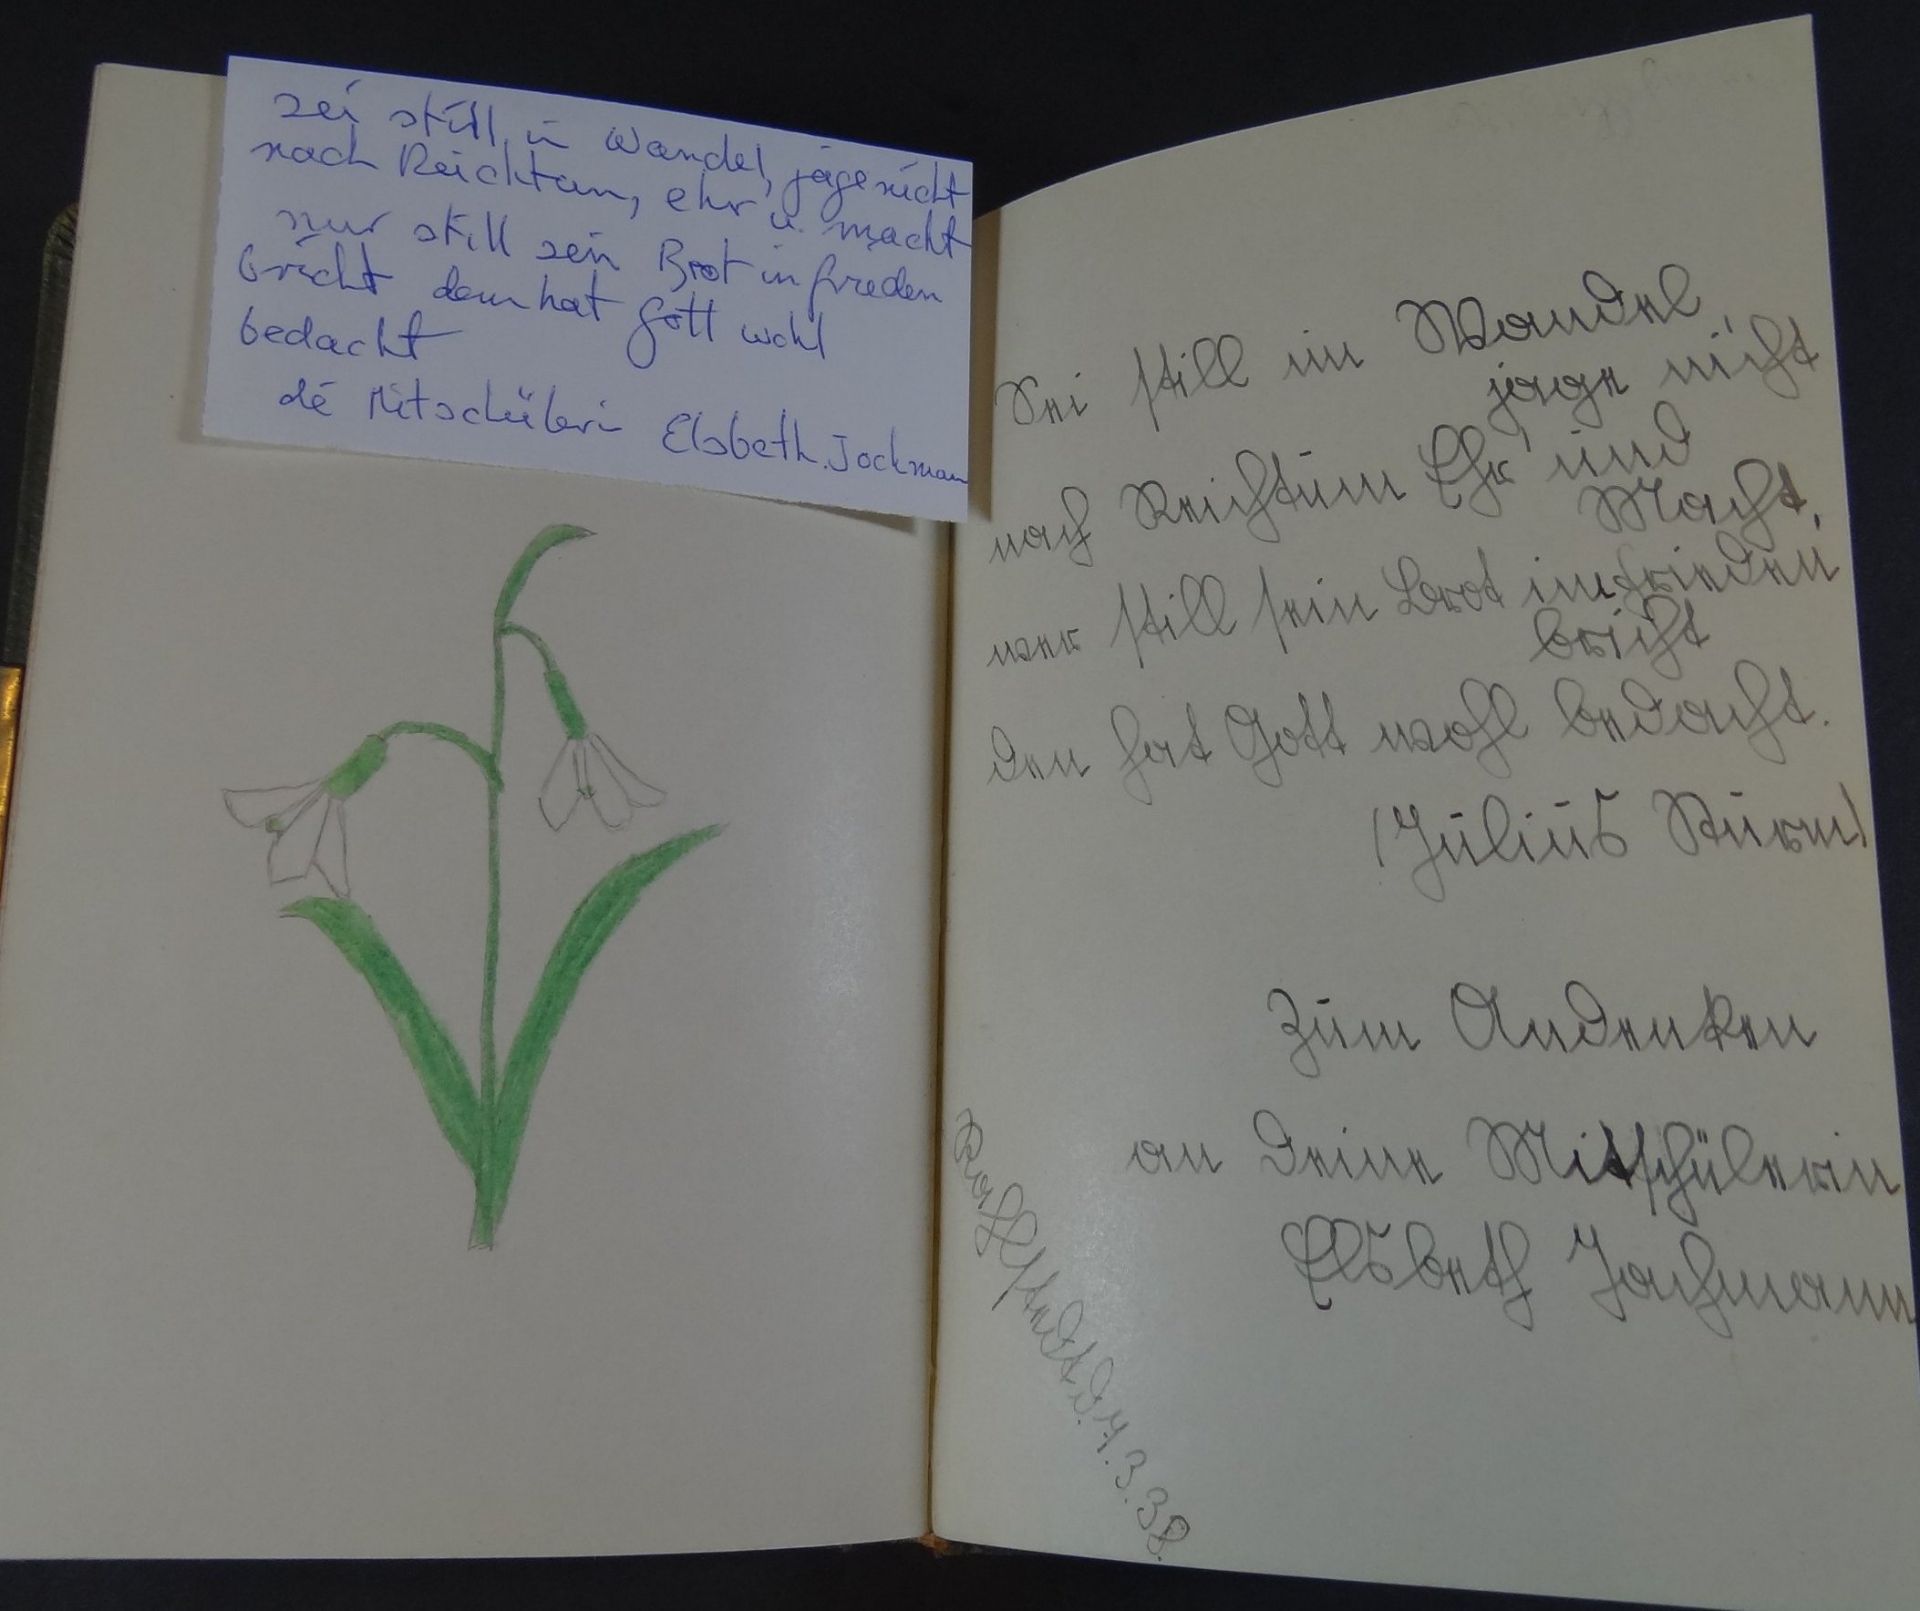 sei still in Wandel, jage nicht
nach Reichtum, ehr u. macht
nur still sein Brot in frieden
bricht dem hat Gott wohl
bedacht
die Mitschülerin Elsbeth Jockman
Sei still im Wandel,
jage nicht
nach Reichtum Ehr' und
Macht,
wer still sein Brot in frieden
bricht
den hat Gott wohl bedacht.
(Julius Sturm)
Zum Andenken
an Deine Mitschülerin
Elsbeth Jochmann
d. 7.3.38.